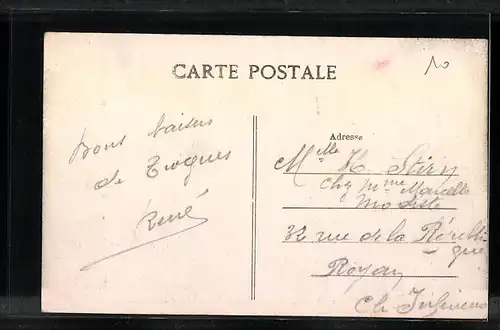 CARTE POSTALE
10
Bons baisers
de Trogues
René
Adresse
Mlle H Stirn
Chez Mme Marcelle
Modiste
32 rue de la Républi
que
Royan
Ch Inférieure